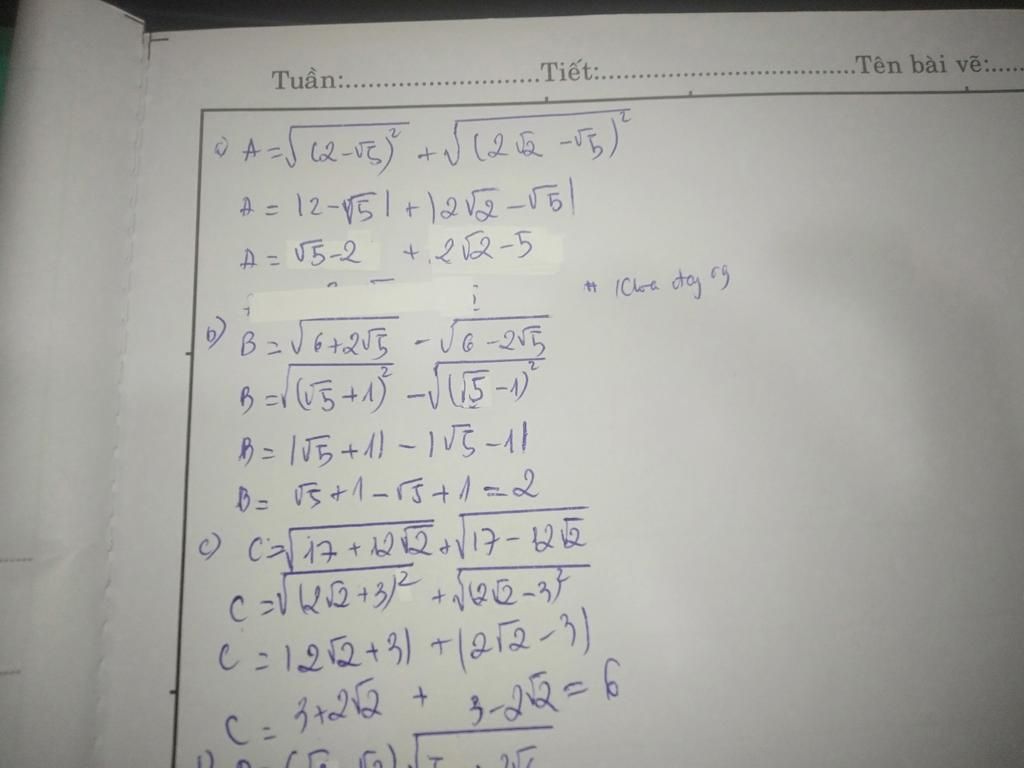 Tuần:..............................Tiết:........................................Tên bài vẽ:.....
a) A = √(2-√5)² + √(2√2 -√5)²
A = |2-√5| + |2√2 -√5|
A = √5-2 + 2√2-5
b) B = √6+2√5 - √6-2√5
B = √(√5+1)² - √(√5-1)²
B = |√5+1| - |√5-1|
B = √5+1-√5+1 = 2
c) C = √17+12√2 + √17-12√2
C = √(2√2+3)² + √(2√2-3)²
C = |2√2+3| + |2√2-3|
C = 3+2√2 + 3-2√2 = 6